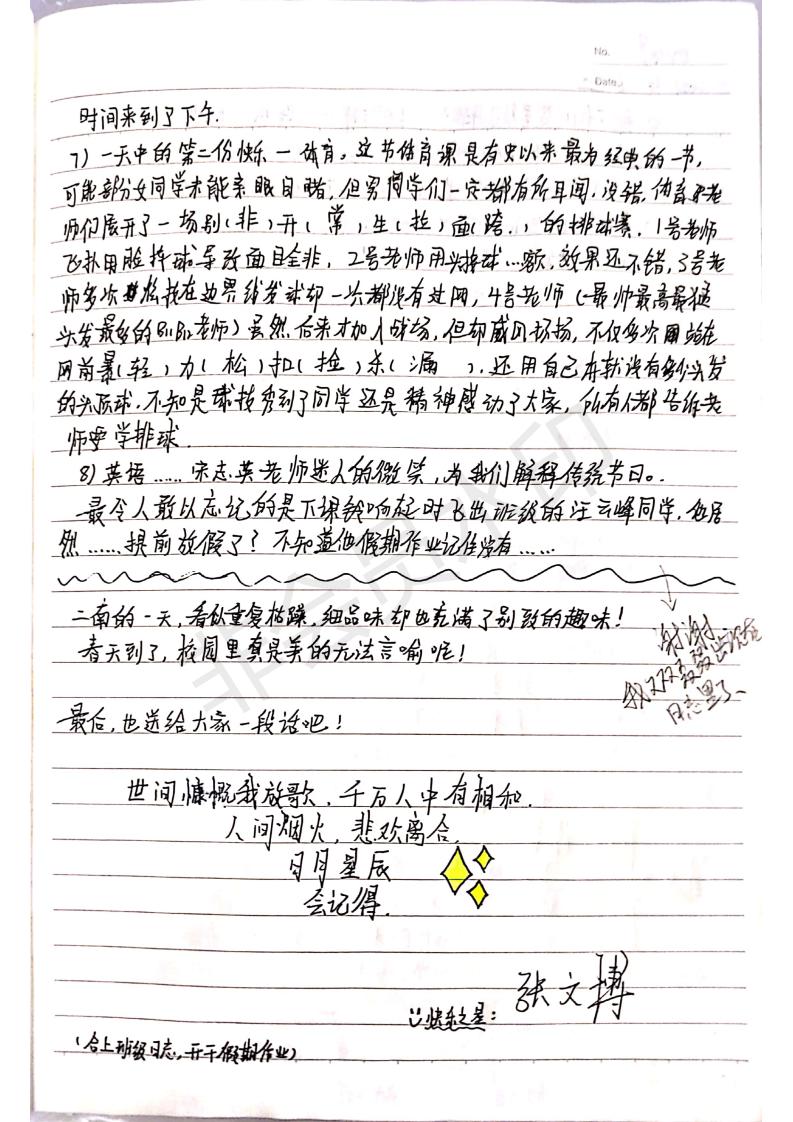 No.
Date.
时间来到了下午.
7) 一天中的第二份快乐—体育。这节体育课是有史以来最为经典的一节,
可能部分女同学未能亲眼目睹, 但男同学们一定都有所耳闻, 没错, 体育老
师们展开了一场别(非)开(常)生(拉)面(跨.)的排球赛. 1号老师
飞扑用脸摔球导致面目全非, 2号老师用头接球…额, 效果还不错, 3号老
师多次 在边界线发球却一次都没有过网, 4号老师(最帅最高最猛
头发最多的BiBi老师)虽然后来才加入战场, 但却威风 扬, 不仅多次 站在
网前暴(轻)力(松)扣(捡)杀(漏), 还用自己本就没有多少头发
的头顶球. 不知是球技秀到了同学还是精神感动了大家, 所有人都告诉老
师要学排球.
8) 英语…… 宋志英老师迷人的微笑, 为我们解释传统节日。
最令人敢以忘记的是下课铃响起时飞出班级的汪云峰同学. 他居
然……提前放假了? 不知道他假期作业记住没有……
二南的一天, 看似重复枯躁, 细品味却也充满了别致的趣味!
春天到了, 校园里真是美的无法言喻呢!
谢谢.
我又又又 出现在
日志里了、
最后, 也送给大家一段话吧!
世间慷慨我放歌, 千万人中有相和.
人间烟火, 悲欢离合,
日月星辰
会记得.
快乐之星: 张文博
(合上班级日志, 开干假期作业)
非会员水印